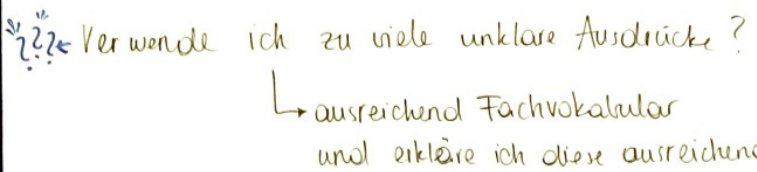 ??? Verwende ich zu viele unklare Ausdrücke?
↳ ausreichend Fachvokabular
und erkläre ich diese ausreichend